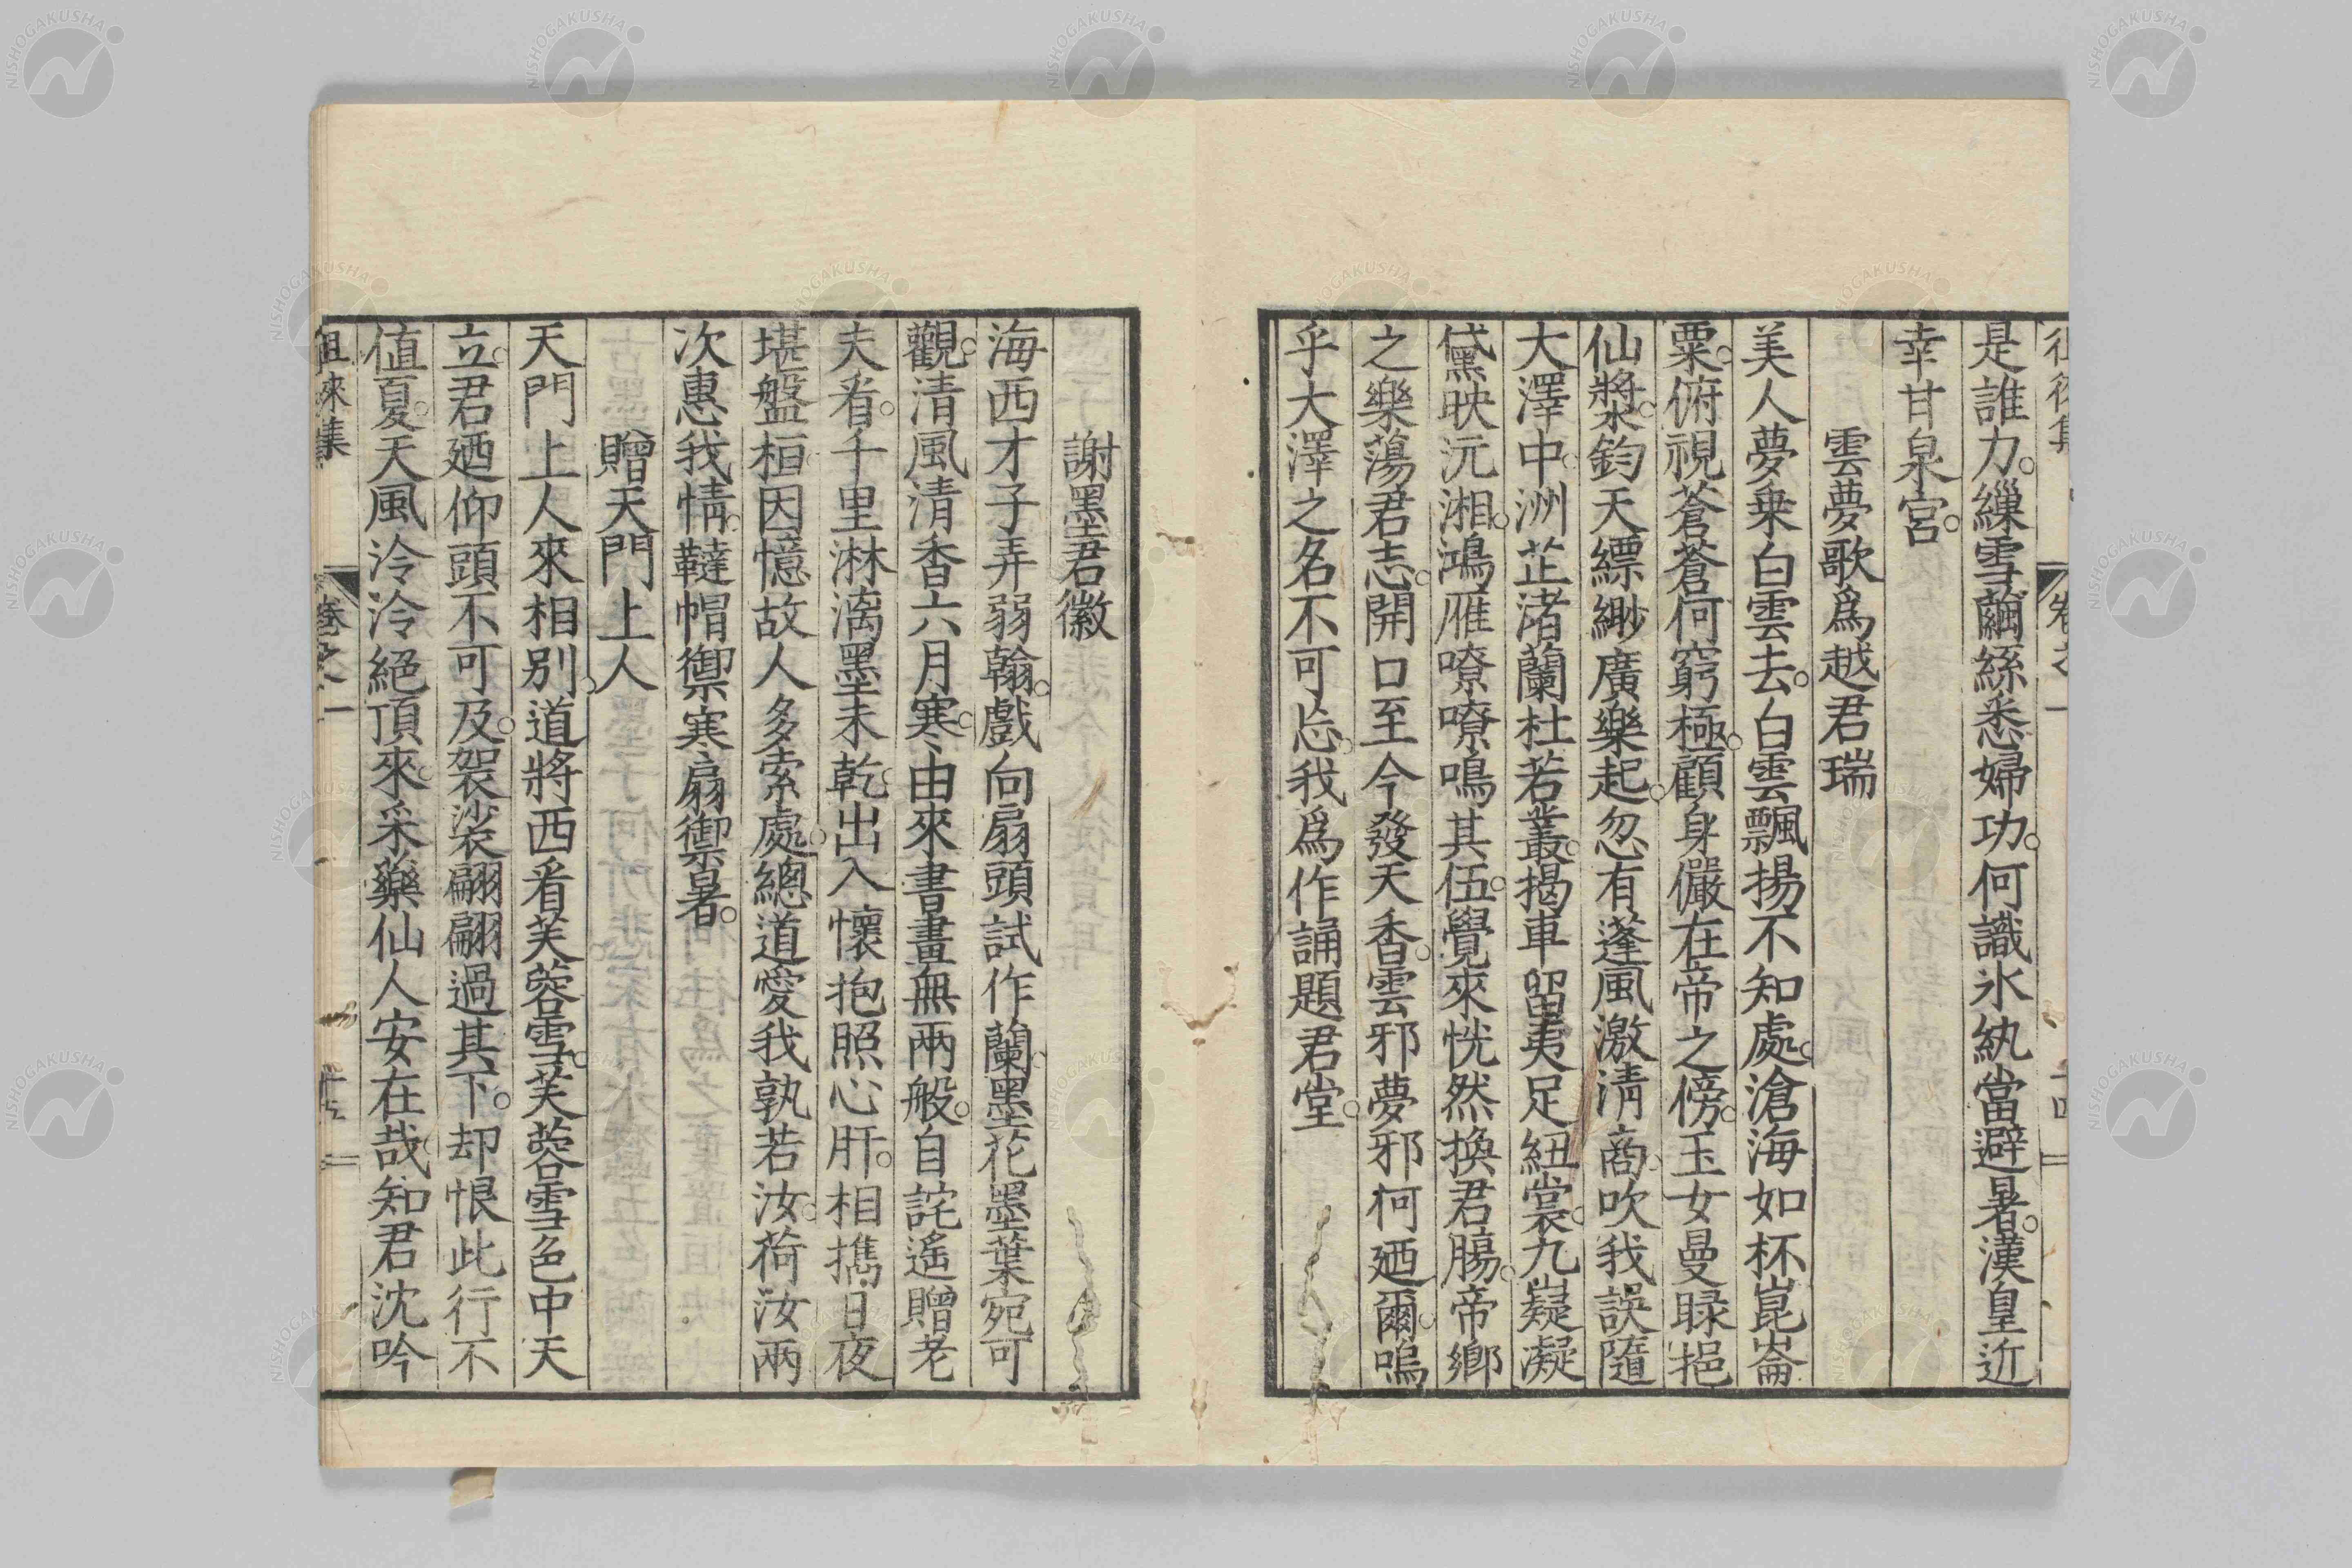 是誰力。繅雪繭絲悉婦功。何識氷紈當避暑。漢皇近
幸甘泉宮。
雲夢歌爲越君瑞
美人夢乗白雲去。白雲飄揚不知處。滄海如杯崑崙
粟。俯視蒼蒼何窮極。顧身儼在帝之傍。玉女曼睩挹
仙漿。鈞天縹緲廣樂起。忽有蓬風激淸商。吹我誤隨
大澤中。中洲芷渚蘭杜若叢。揭車留夷足紐裳。九嶷凝
黛映沅湘。鴻雁嘹嘹鳴其伍。覺來恍然換君膓。帝鄉
之樂蕩君志。開口至今發天香。雲邪夢邪何廼爾。嗚
乎大澤之名不可忘。我爲作誦題君堂。
謝墨君徽
海西才子弄弱翰。戲向扇頭試作蘭。墨花墨葉宛可
觀。清風清香六月寒。由來書畫無兩般。自詫遙贈老
夫看。千里淋漓墨未乾。出入懷抱照心肝。相攜日夜
堪盤桓。因憶故人多索處。總道愛我孰若汝。荷汝兩
次惠我情。韃帽禦寒扇禦暑。
贈天門上人
天門上人來相別。道將西看芙蓉雪。芙蓉雪色中天
立。君廼仰頭不可及。袈裟翩翩過其下。却恨此行不
値夏。天風泠泠絕頂來。采藥仙人安在哉。知君沈吟
徂徠集 卷之一 十五